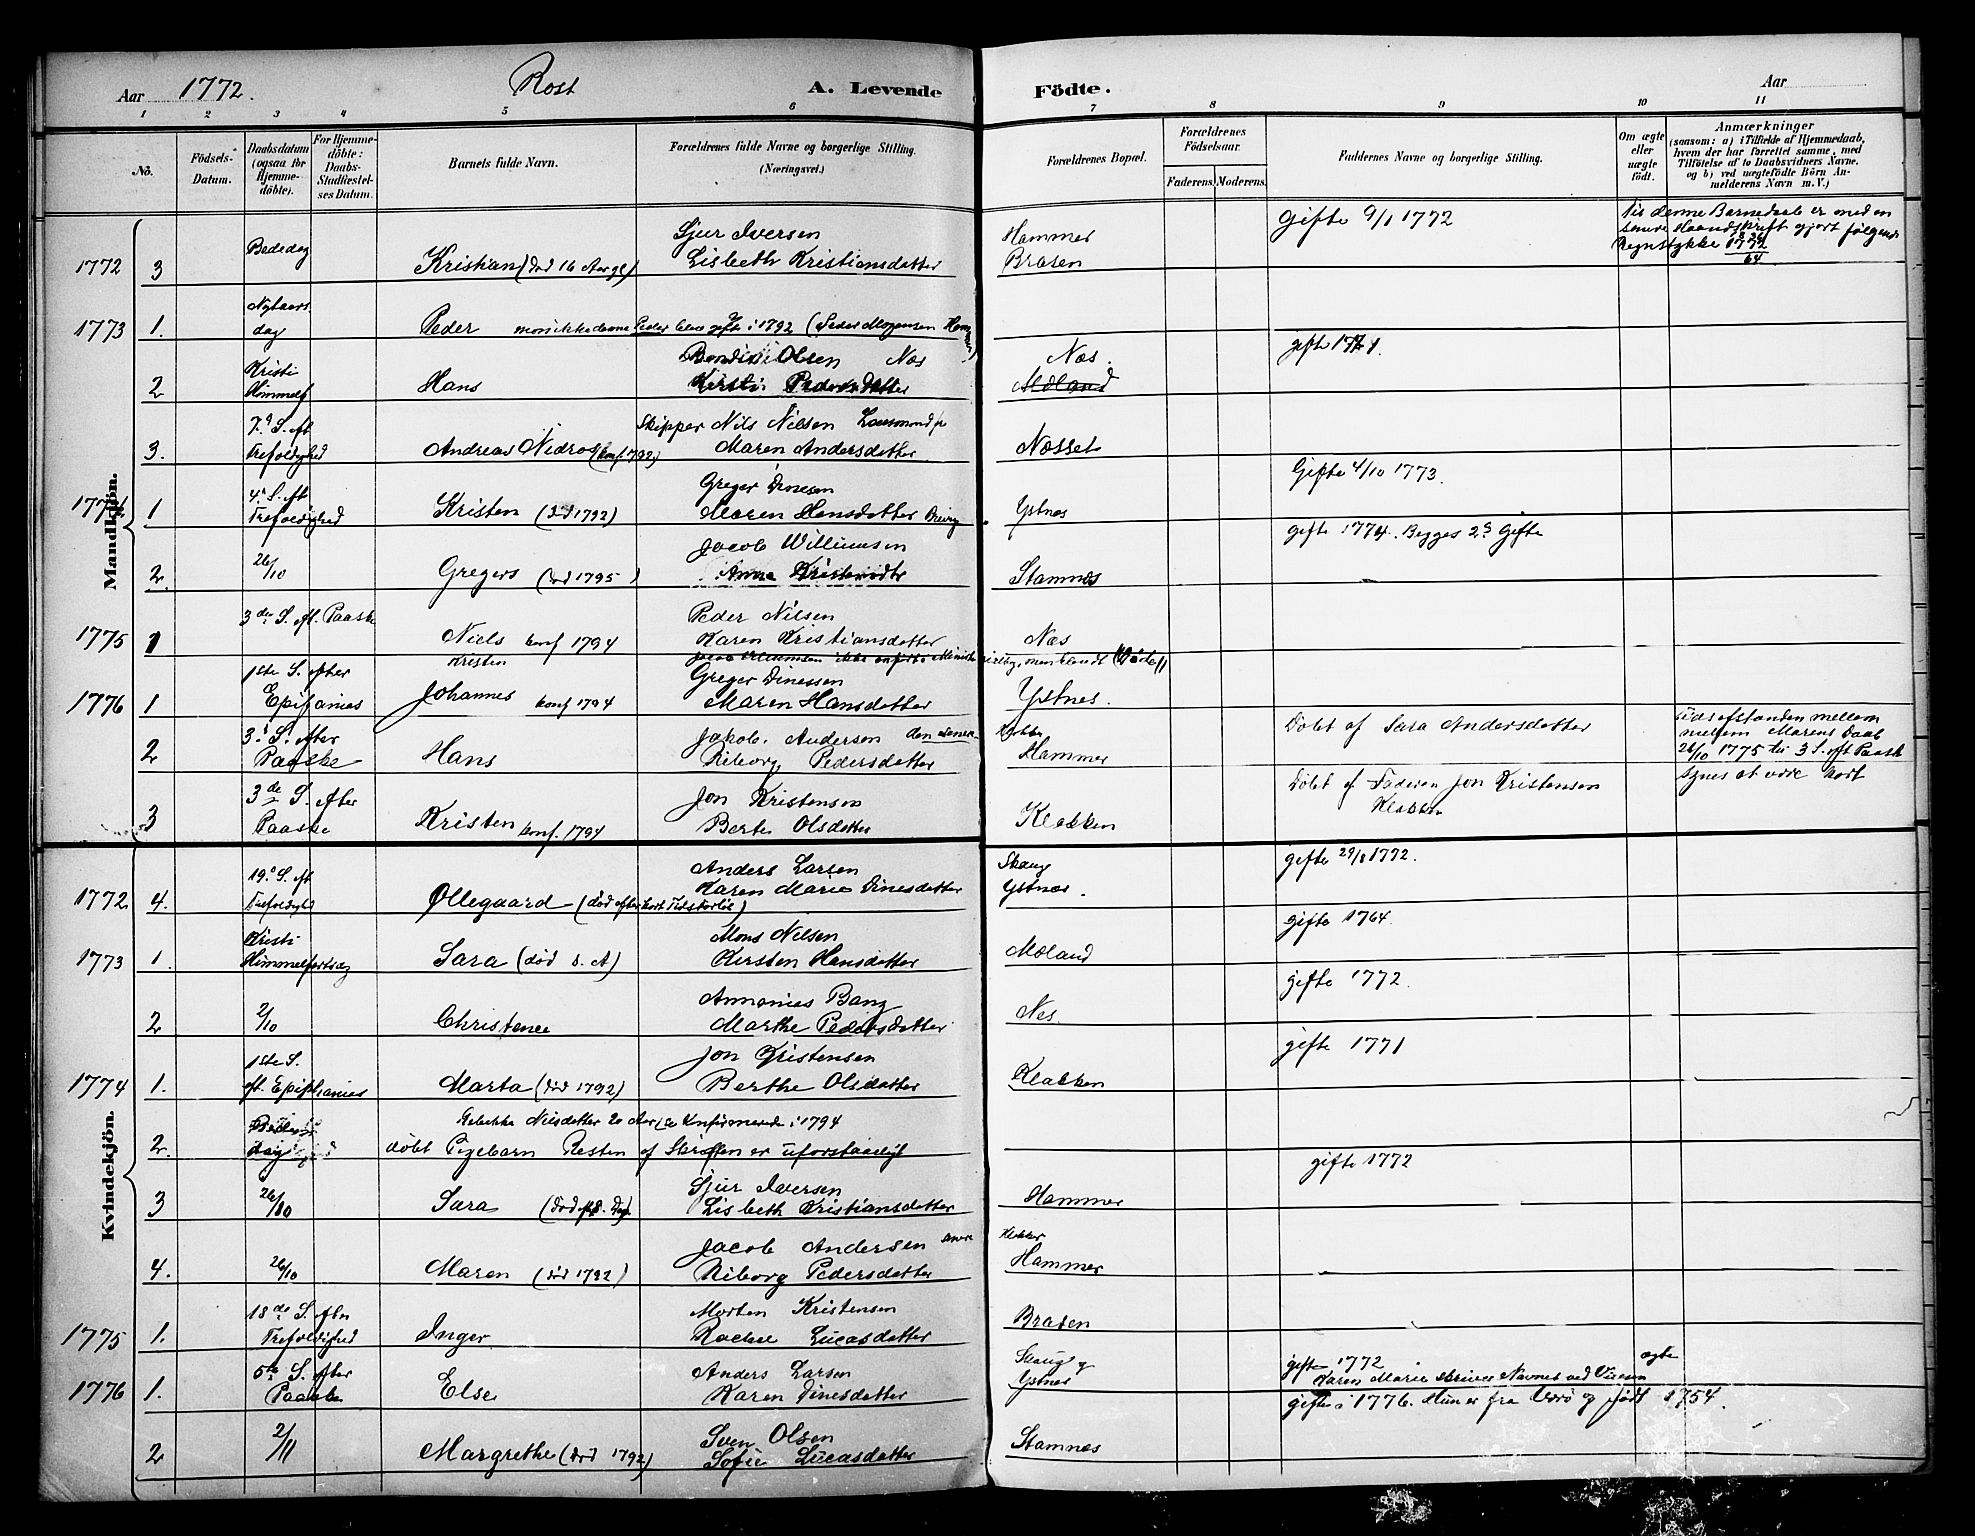 Aar 1772. Rost A. Levende Födte. Aar
1 2 3 4 5 6 7 8 9 10 11
No.
Födsels-Datum.
Daabsdatum (ogsaa for Hjemmedöbte).
For Hjemmedöbte: Daabs-Stadfæstelses Datum.
Barnets fulde Navn.
Forældrenes fulde Navne og borgerlige Stilling. (Næringsvei.)
Forældrenes Bopæl.
Forældrenes Födselsaar.
Faderens. Moderens.
Faddernes Navne og borgerlige Stilling.
Om ægte eller uægte födt.
Anmærkninger
(saasom: a) i Tilfælde af Hjemmedaab, hvem der har forrettet samme, med Tilföielse af to Daabsvidners Navne, og b) ved uægtefödte Börn Anmelderens Navn m. V.)
Mandkjön.
1772 3 Bededag Kristian (død 16 Aar gl) Sjur Iversen Lisbeth Kristiansdatter Hammer Brasen gifte 9/1 1772
Til denne Barnedaab er med en
senere Haandskrift gjort følgende
Regnstykke 1772
64
1773 1. Nytaars dag Peder mon ikke denne Peder blev gift i 1792 (Peder Mogensen
2 Kristi Himmelf Hans Olsen Næs Kirsti Pedersdatter Næs. Moland gifte 1771.
3. 7de S. eft Trefoldighed Andreas Nidros (konf. 1792) Skipper Nils Nilsen Maren Andersdatter Næsset
1774 1 4. S. eft Trefoldighed Kristen (død 1792) Greger Dinesen Maren Hansdatter Ystnes Gifte 4/10 1773.
2. 26/10 Gregers (død 1795) Jacob Willumsen Anna Kristensdtr Stamnes gifte 1774. Begges 2det Gifte
1775 1 3die S. eft. Paaske Niels konf 1794 Peder Nilsen Karen Kristiansdatter Næs
Kristen Jacob Willumsen ikke anført i men blandt (Døde)
1776 1 1ste S. efter Epifanies Johannes konf 1794 Greger Dinessen Maren Hansdatter Ystnes.
2 3. S. efter Paaske Hans Jakob Andersen den senere Riborg Pedersdatter Hammer Døbt af Sara Andersdatter
Tidsafstanden mellem
mellem Marens Daab
26/10 1775 til 3 S. eft Paaske
synes at være kort
3 3de S. efter Paaske Kristen konf. 1794 Jon Kristensen Berte Olsdatter Klakken Døbt af Faderen Jon Kristensen Klakken
Kvindekjön.
1772 4. 19. S. eft Trefoldighed Øllegaard (død efter kort Tids forløb) Anders Larsen Karen Marie Dinesdatter Skaug Ystnæs. gifte 29/8 1772.
1773 1. Kristi Himmelfartsdag Sara (død s. A) Mons Nilsen Kirsten Hansdatter Moland gifte 1764.
2 2/10 Christence Annanias Bang Marthe Pedersdatter Nes. gifte 1772.
1774 1. 1ste S. eft. Epiphanies Marta (død 1792) Jon Kristensen Berthe Olsdatter Klakken gifte 1771
Rebekka Nilsdatter 20 Aar, konfirmerede i 1794
2. dag døbt Pigebarn Resten af Skriften er uforstaaeligt
3 26/10 Sara (død 8. Dage) Sjur Iversen Lisbeth Kristiansdatter Hammer gifte 1772
4. 26/10 Maren (død 1792) Jacob Andersen senere Riborg Pedersdatter Klokker Hammer
1775 1. 18de S. efter Trefoldighed Inger Morten Kristensen Rachel Lucasdatter Brasen
1776 1. 5te S. efter Paaske Else Anders Larsen Karen Dinesdatter Skaug og Ystnes gifte 1772 Karen Marie skrives Navnet ved Vielsen ægte
2 2/11 Margrethe (død 1792) Sven Olsen Sofie Lucasdatter Stamnæs gifte i 1776. Hun er fra Værø og født 1754.